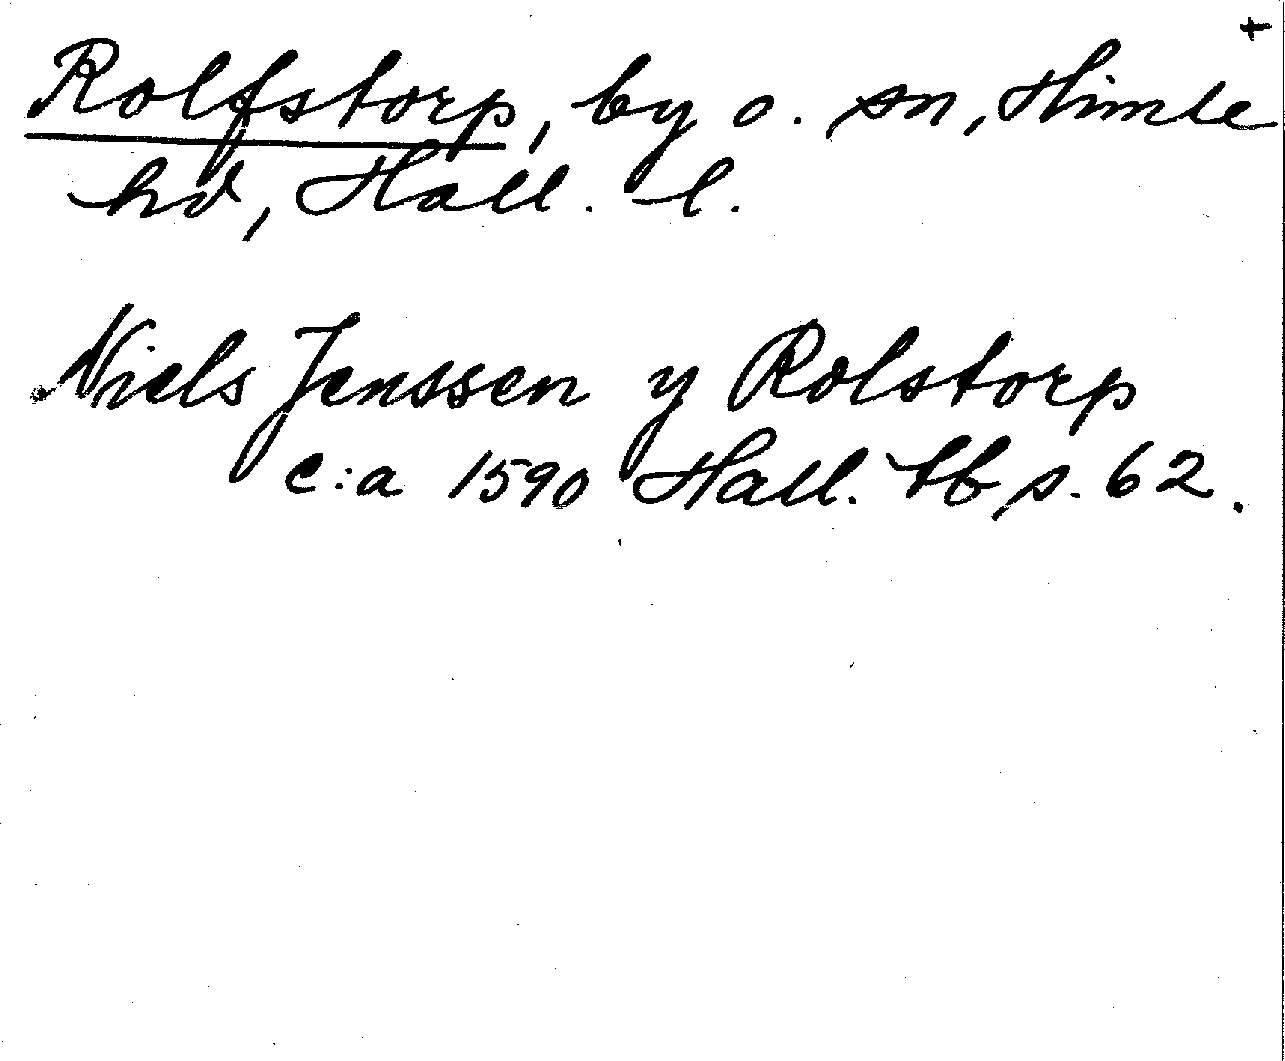 +
Rolfstorp, by o. sn, Himle
hd, Hall. l.
Niels Jenssen y Rolstorp
c:a 1590 Hall. lb s. 62.